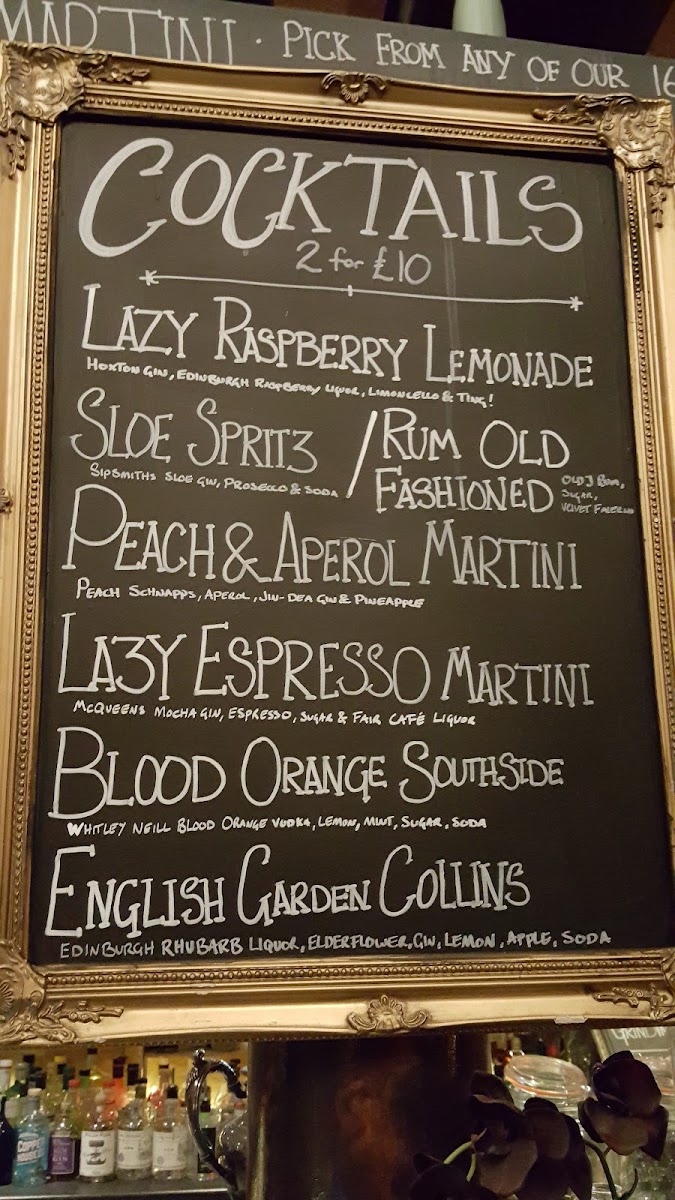 MARTINI · PICK FROM ANY OF OUR 16
COCKTAILS
2 for £10
LAZY RASPBERRY LEMONADE
HOXTON GIN, EDINBURGH RASPBERRY LIQUOR, LIMONCELLO & TING!
SLOE SPRITZ /
SIPSMITHS SLOE GIN, PROSECCO & SODA
RUM OLD
FASHIONED
OLD J RUM,
SUGAR,
VELVET FALERNUM
PEACH & APEROL MARTINI
PEACH SCHNAPPS, APEROL, JIN-DEA GIN & PINEAPPLE
LAZY ESPRESSO MARTINI
MCQUEENS MOCHA GIN, ESPRESSO, SUGAR & FAIR CAFÉ LIQUOR
BLOOD ORANGE SOUTHSIDE
WHITLEY NEILL BLOOD ORANGE VODKA, LEMON, MINT, SUGAR, SODA
ENGLISH GARDEN COLLINS
EDINBURGH RHUBARB LIQUOR, ELDERFLOWER, GIN, LEMON, APPLE, SODA